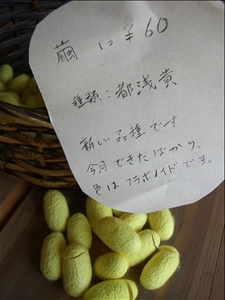 繭 1つ ¥60
種類:都浅黄
新しい品種です
今月できたばかり。
色はフラボノイドです。